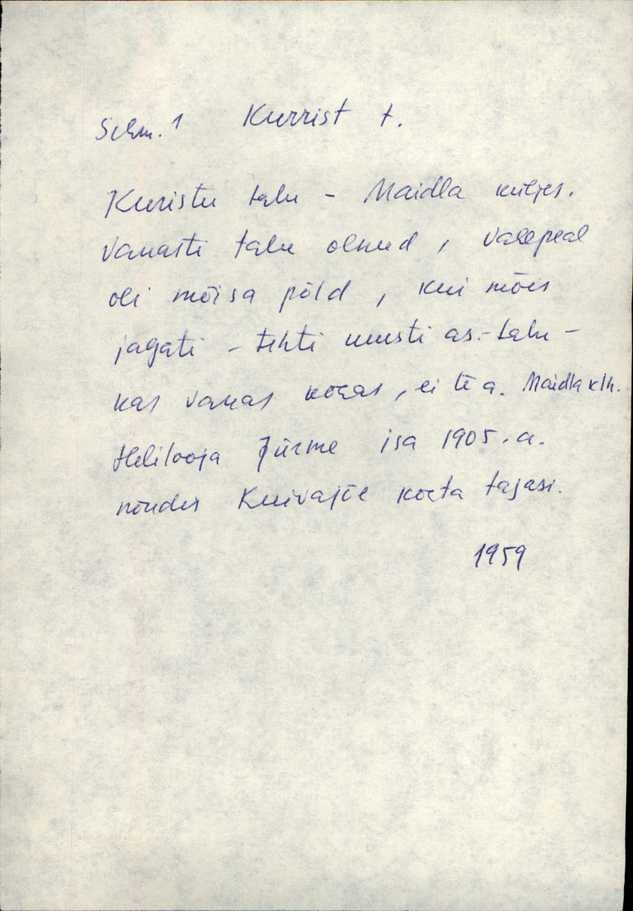 Schm. 1 Kurrist t.
Kuristu talu - Maidla küljes.
Vanasti talu olnud, vahepeal
oli mõisa põld, kui mõis
jagati - tehti uuesti as.-talu -
kas vanas kohas, ei tea. Maidla klh.
Helilooja Jürme isa 1905. a.
nõudis Kuivajõe kohta tagasi.
1959